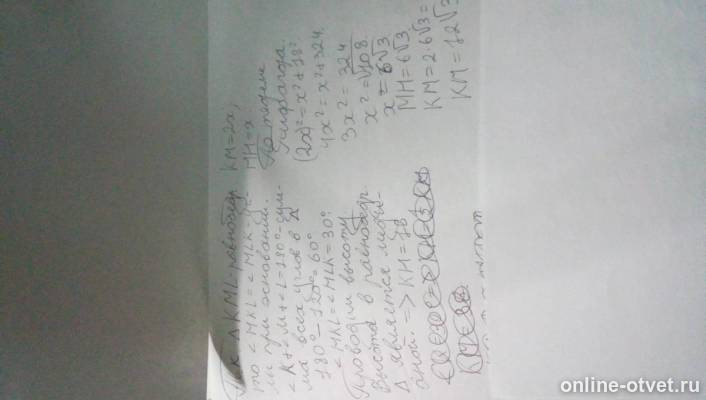 Т.к. △KML равнобедр.
то ∠MKL = ∠MLK - уг-
лы при основании.
∠K+∠M+∠L=180°-сум-
ма всех углов в △
180°-120°=60°
∠MKL=∠MLK=30°.
Проводим высоту
Высота в равнобедр.
△ является меди-
аной. => KH=18
KM=2x,
MH=x
По теореме
Пифагора.
(2x)²=x²+18²
4x²=x²+324.
3x²=324
x²=√108.
x=6√3
MH=6√3.
KM=2·6√3=
KM=12√3
online-otvet.ru